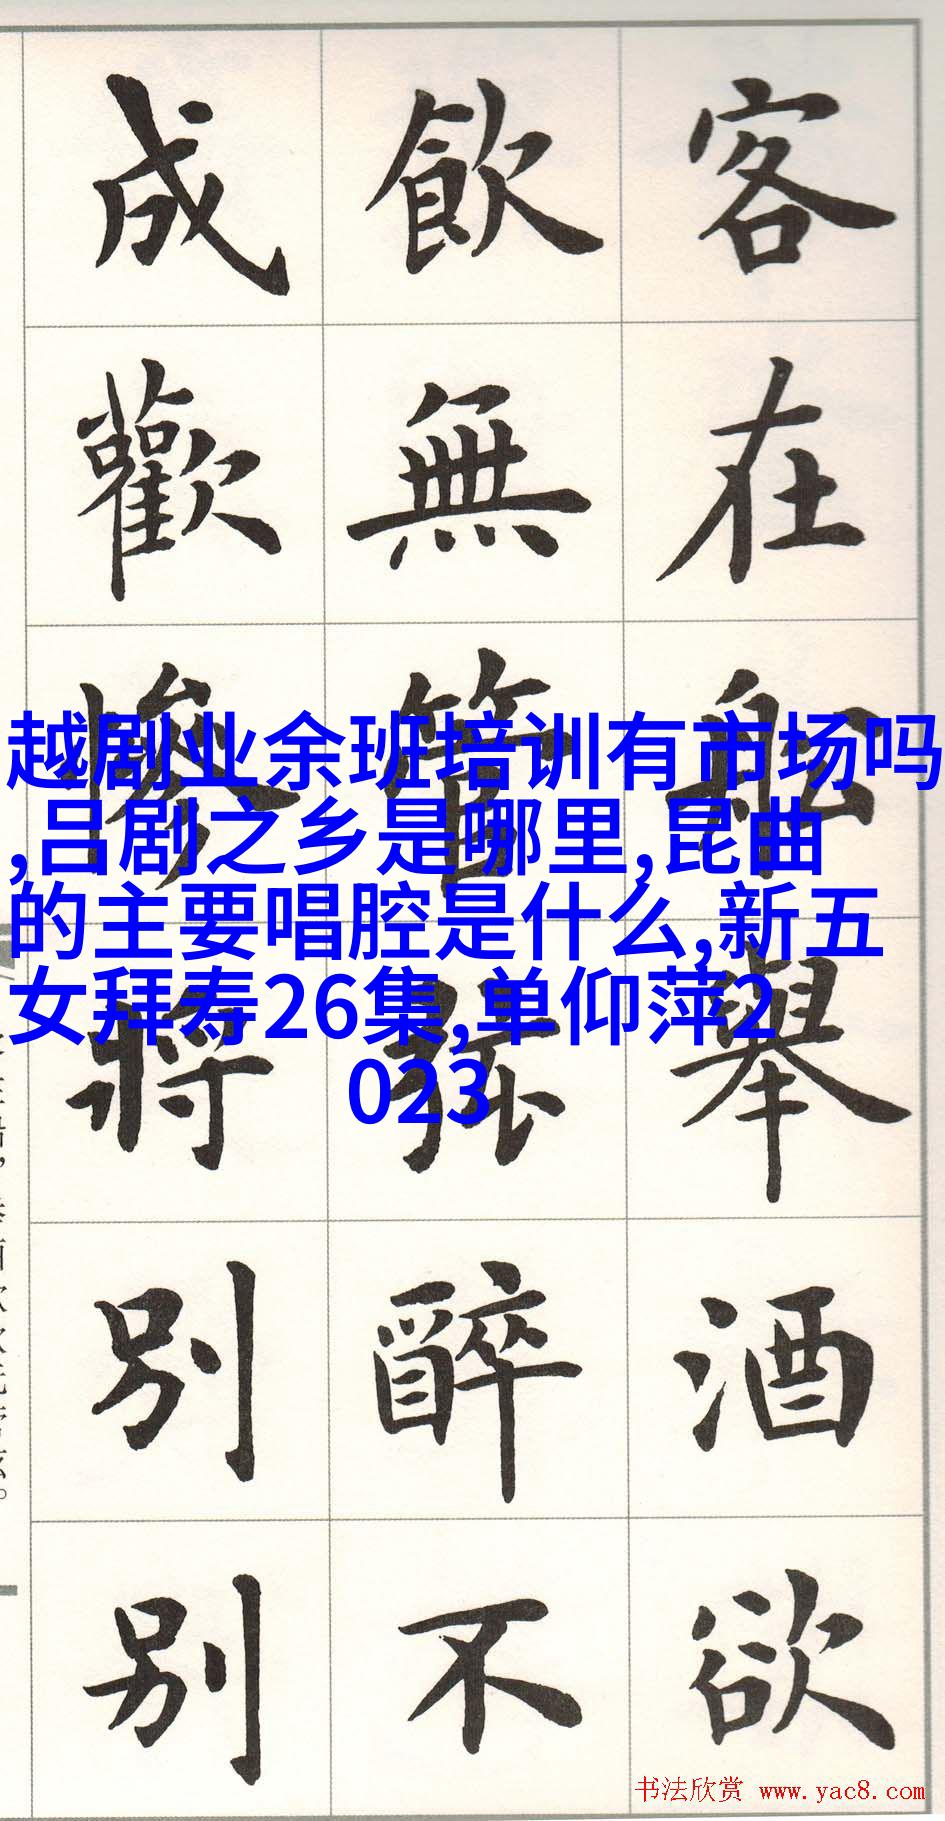 客在船舉酒欲
飲無管弦醉不
成歡慘將別別
越剧业余班培训有市场吗
,吕剧之乡是哪里,昆曲
的主要唱腔是什么,新五
女拜寿26集,单仰萍2
023
书法欣赏 www.yac8.com